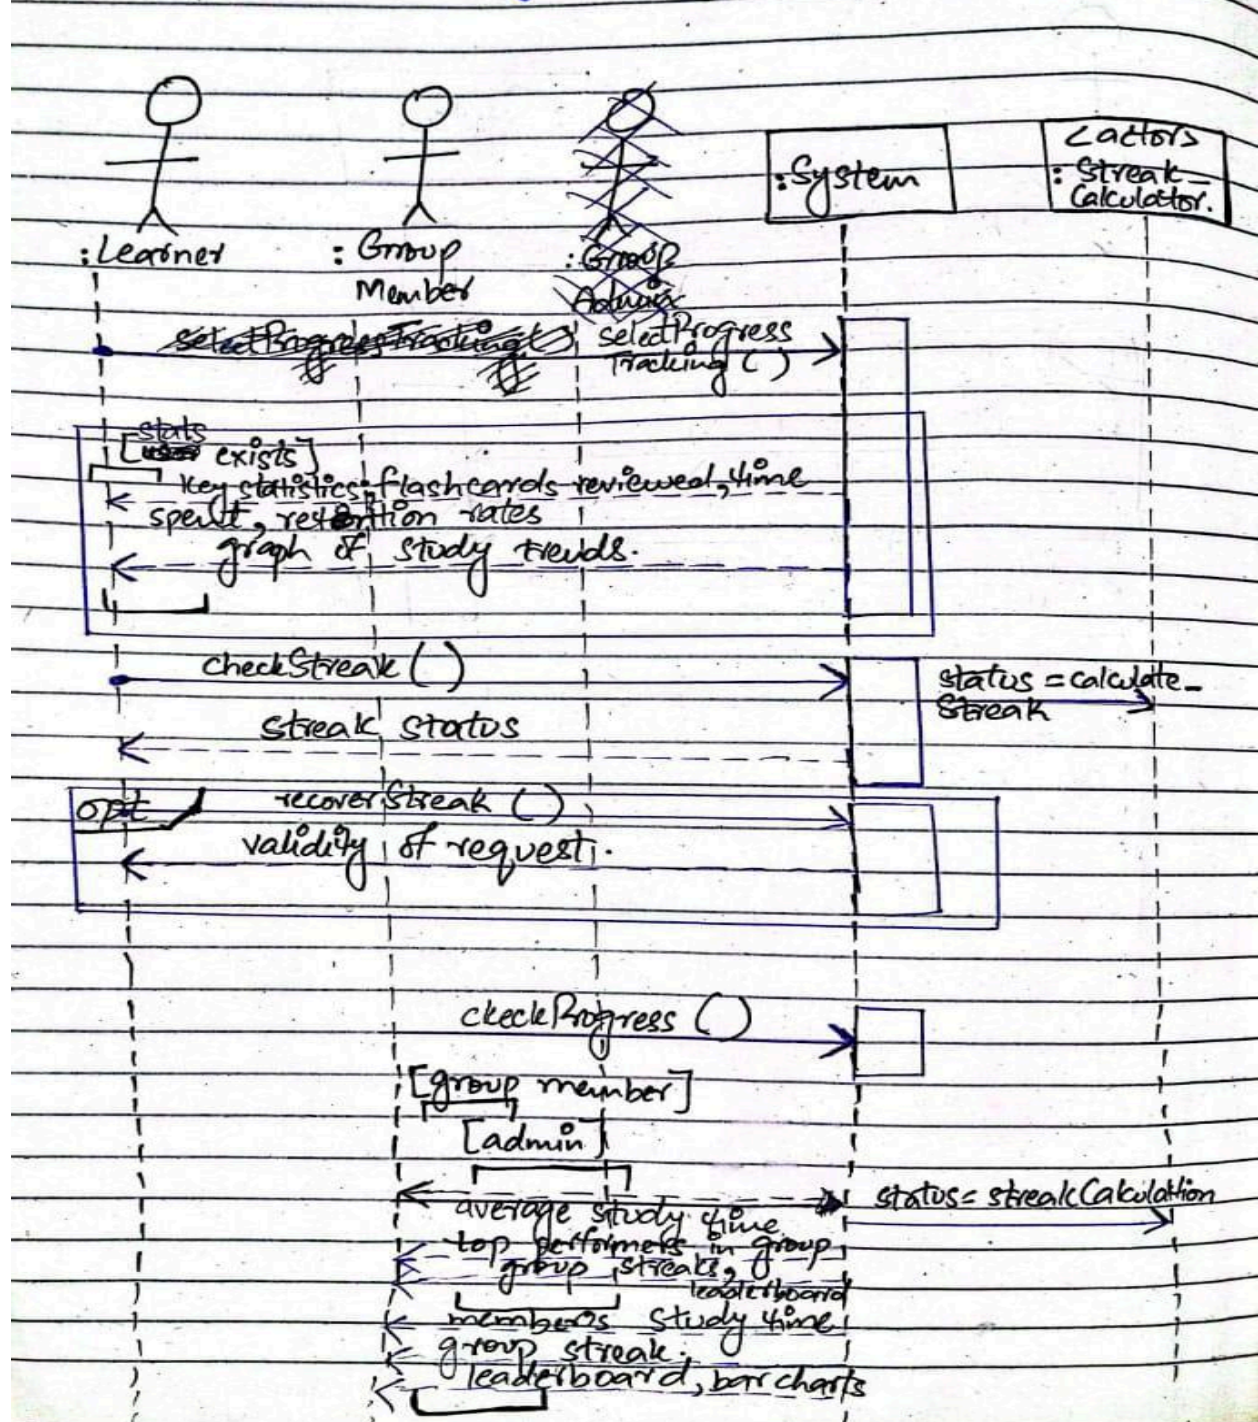 <actors
:System
: Streak-
Calculator.
:Learner
: Group
Member
: Group
Admin
selectProgressTracking()
selectProgress
Tracking ( )
stats
[user exists]
key statistics: flashcards reviewed, time
spent, retention rates
graph of study trends.
checkStreak ( )
status = calculate-
Streak
streak status
opt
recoverStreak ( )
validity of request.
ckeckProgress ( )
[group member]
[admin]
status = streakCalculation
average study time
top performers in group
group streaks,
leaderboard
members study time
group streak.
leaderboard, bar charts